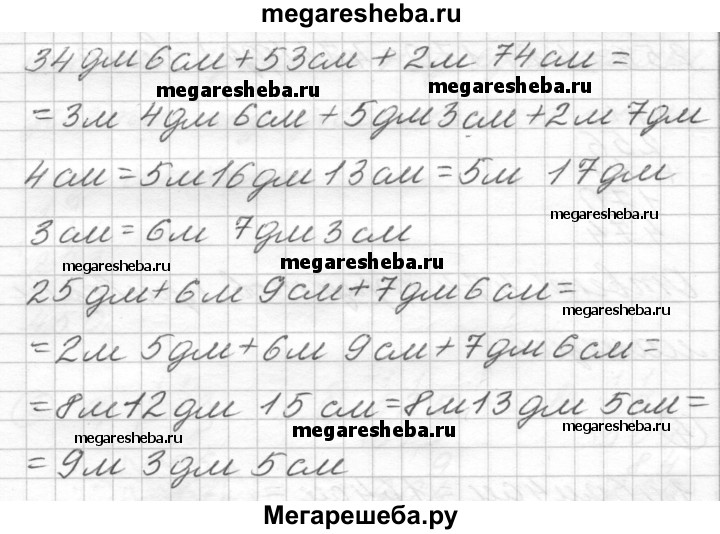 megaresheba.ru
34дм 6см + 53см + 2м 74см =
megaresheba.ru megaresheba.ru
= 3м 4дм 6см + 5дм 3см + 2м 7дм
4см = 5м 16дм 13см = 5м 17дм
megaresheba.ru
3см = 6м 7дм 3см
megaresheba.ru megaresheba.ru
25дм + 6м 9см + 7дм 6см =
megaresheba.ru
= 2м 5дм + 6м 9см + 7дм 6см =
= 8м 12дм 15см = 8м 13дм 5см =
megaresheba.ru megaresheba.ru megaresheba.ru
= 9м 3дм 5см
Мегарешеба.ру